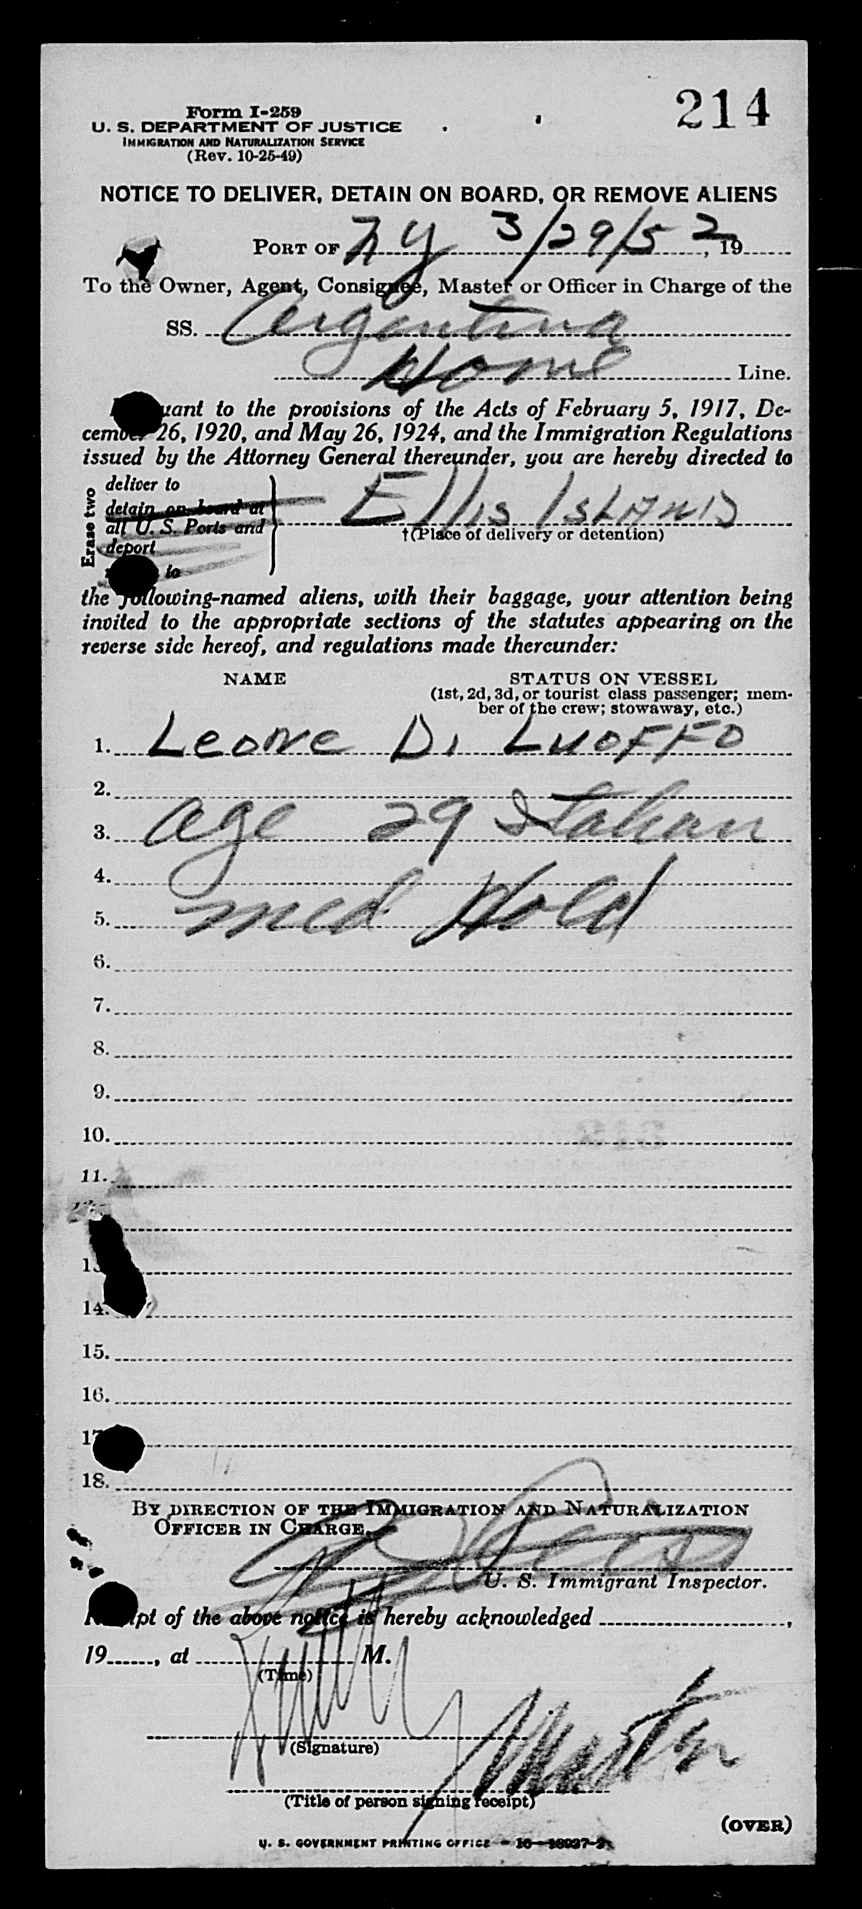 214
Form I-259
U. S. DEPARTMENT OF JUSTICE
IMMIGRATION AND NATURALIZATION SERVICE
(Rev. 10-25-49)
NOTICE TO DELIVER, DETAIN ON BOARD, OR REMOVE ALIENS
PORT OF NY 3/29/52, 19
To the Owner, Agent, Consignee, Master or Officer in Charge of the
SS. Argentina
Home Line.
uant to the provisions of the Acts of February 5, 1917, De-
cember 26, 1920, and May 26, 1924, and the Immigration Regulations
issued by the Attorney General thereunder, you are hereby directed to
Erase two
deliver to
detain on board at
all U. S. Ports and
deport
to
Ellis Island
†(Place of delivery or detention)
the following-named aliens, with their baggage, your attention being
invited to the appropriate sections of the statutes appearing on the
reverse side hereof, and regulations made thereunder:
NAME STATUS ON VESSEL
(1st, 2d, 3d, or tourist class passenger; mem-
ber of the crew; stowaway, etc.)
1. Leone Di Luoffo
2.
3. age 29 Italian
4.
5. med Hold
6.
7.
8.
9.
10.
11.
13
14.
15.
16.
17
18.
BY DIRECTION OF THE IMMIGRATION AND NATURALIZATION
OFFICER IN CHARGE.
U. S. Immigrant Inspector.
pt of the above notice is hereby acknowledged ,
19 , at M.
(Time)
(Signature)
Martin
(Title of person signing receipt)
(OVER)
U. S. GOVERNMENT PRINTING OFFICE